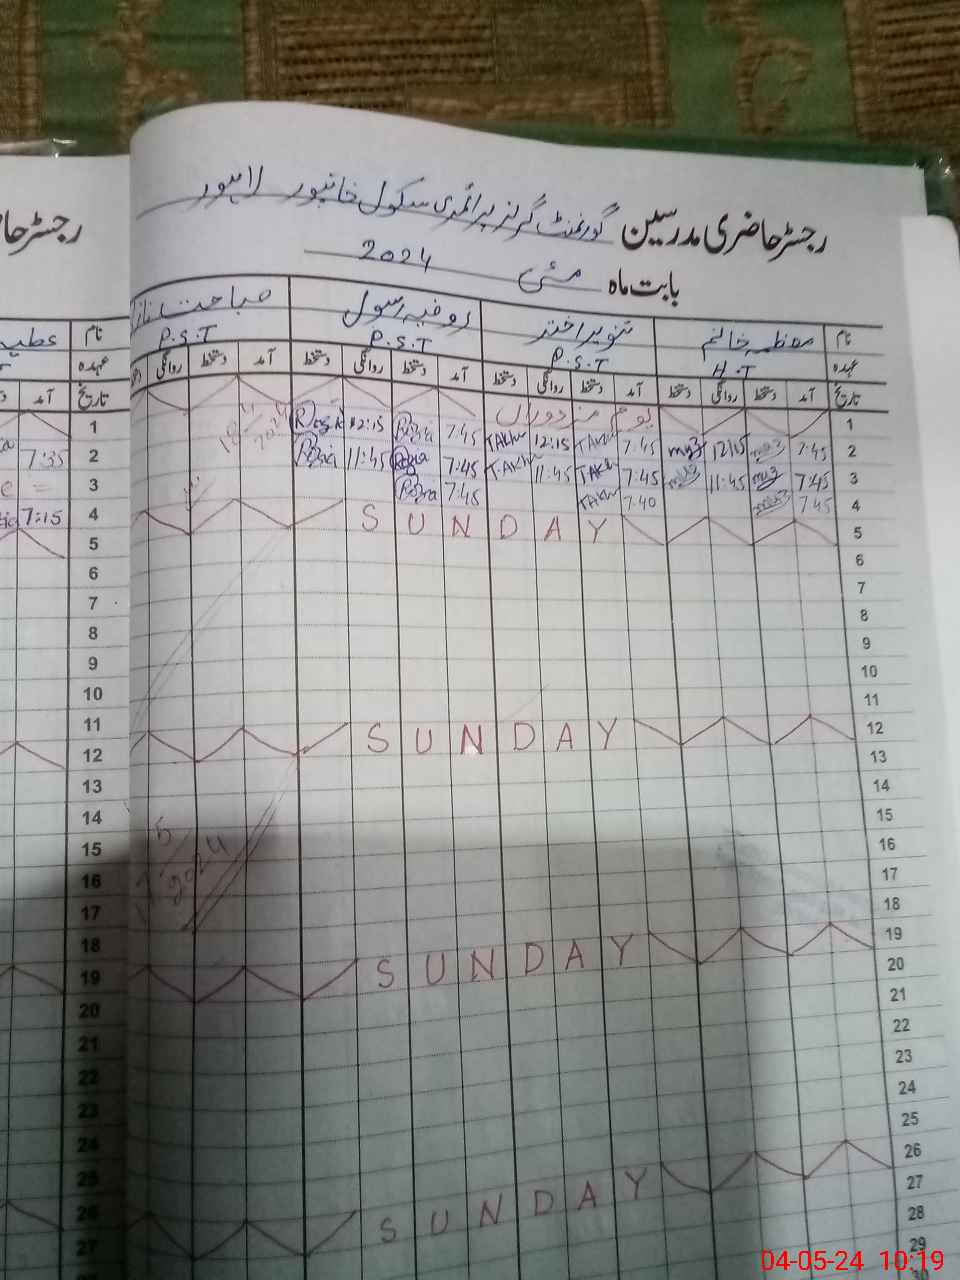 رجسٹر حاضری مدرسین گورنمنٹ گرلز پرائمری سکول خانپور لاہور
بابت ماہ مئی 2024
نام معظمہ خانم تنویر اختر روفیہ رسول صباحت ناز نام
عہدہ H.T P.S.T P.S.T P.S.T عہدہ
تاریخ آمد دستخط روانگی دستخط آمد دستخط روانگی دستخط آمد دستخط روانگی دستخط آمد دستخط روانگی تاریخ آمد
1 یوم مزدوراں 1
2 7:45 12:15 7:45 TAkh 12:15 TAkh 7:45 12:15 2 7:35
3 7:45 11:45 7:45 TAkh 11:45 TAkh 7:45 11:45 3 =
4 7:45 7:40 TAkh 7:45 4 7:15
5 SUNDAY 5
6 6
7 7
8 8
9 9
10 10
11 11
12 SUNDAY 12
13 13
14 14
15 15
16 16
17 17
18 18
19 SUNDAY 19
20 20
21 21
22 22
23 23
24 24
25 25
26 SUNDAY 26
27 27
28
29
رجسٹر حا
04-05-24 10:19